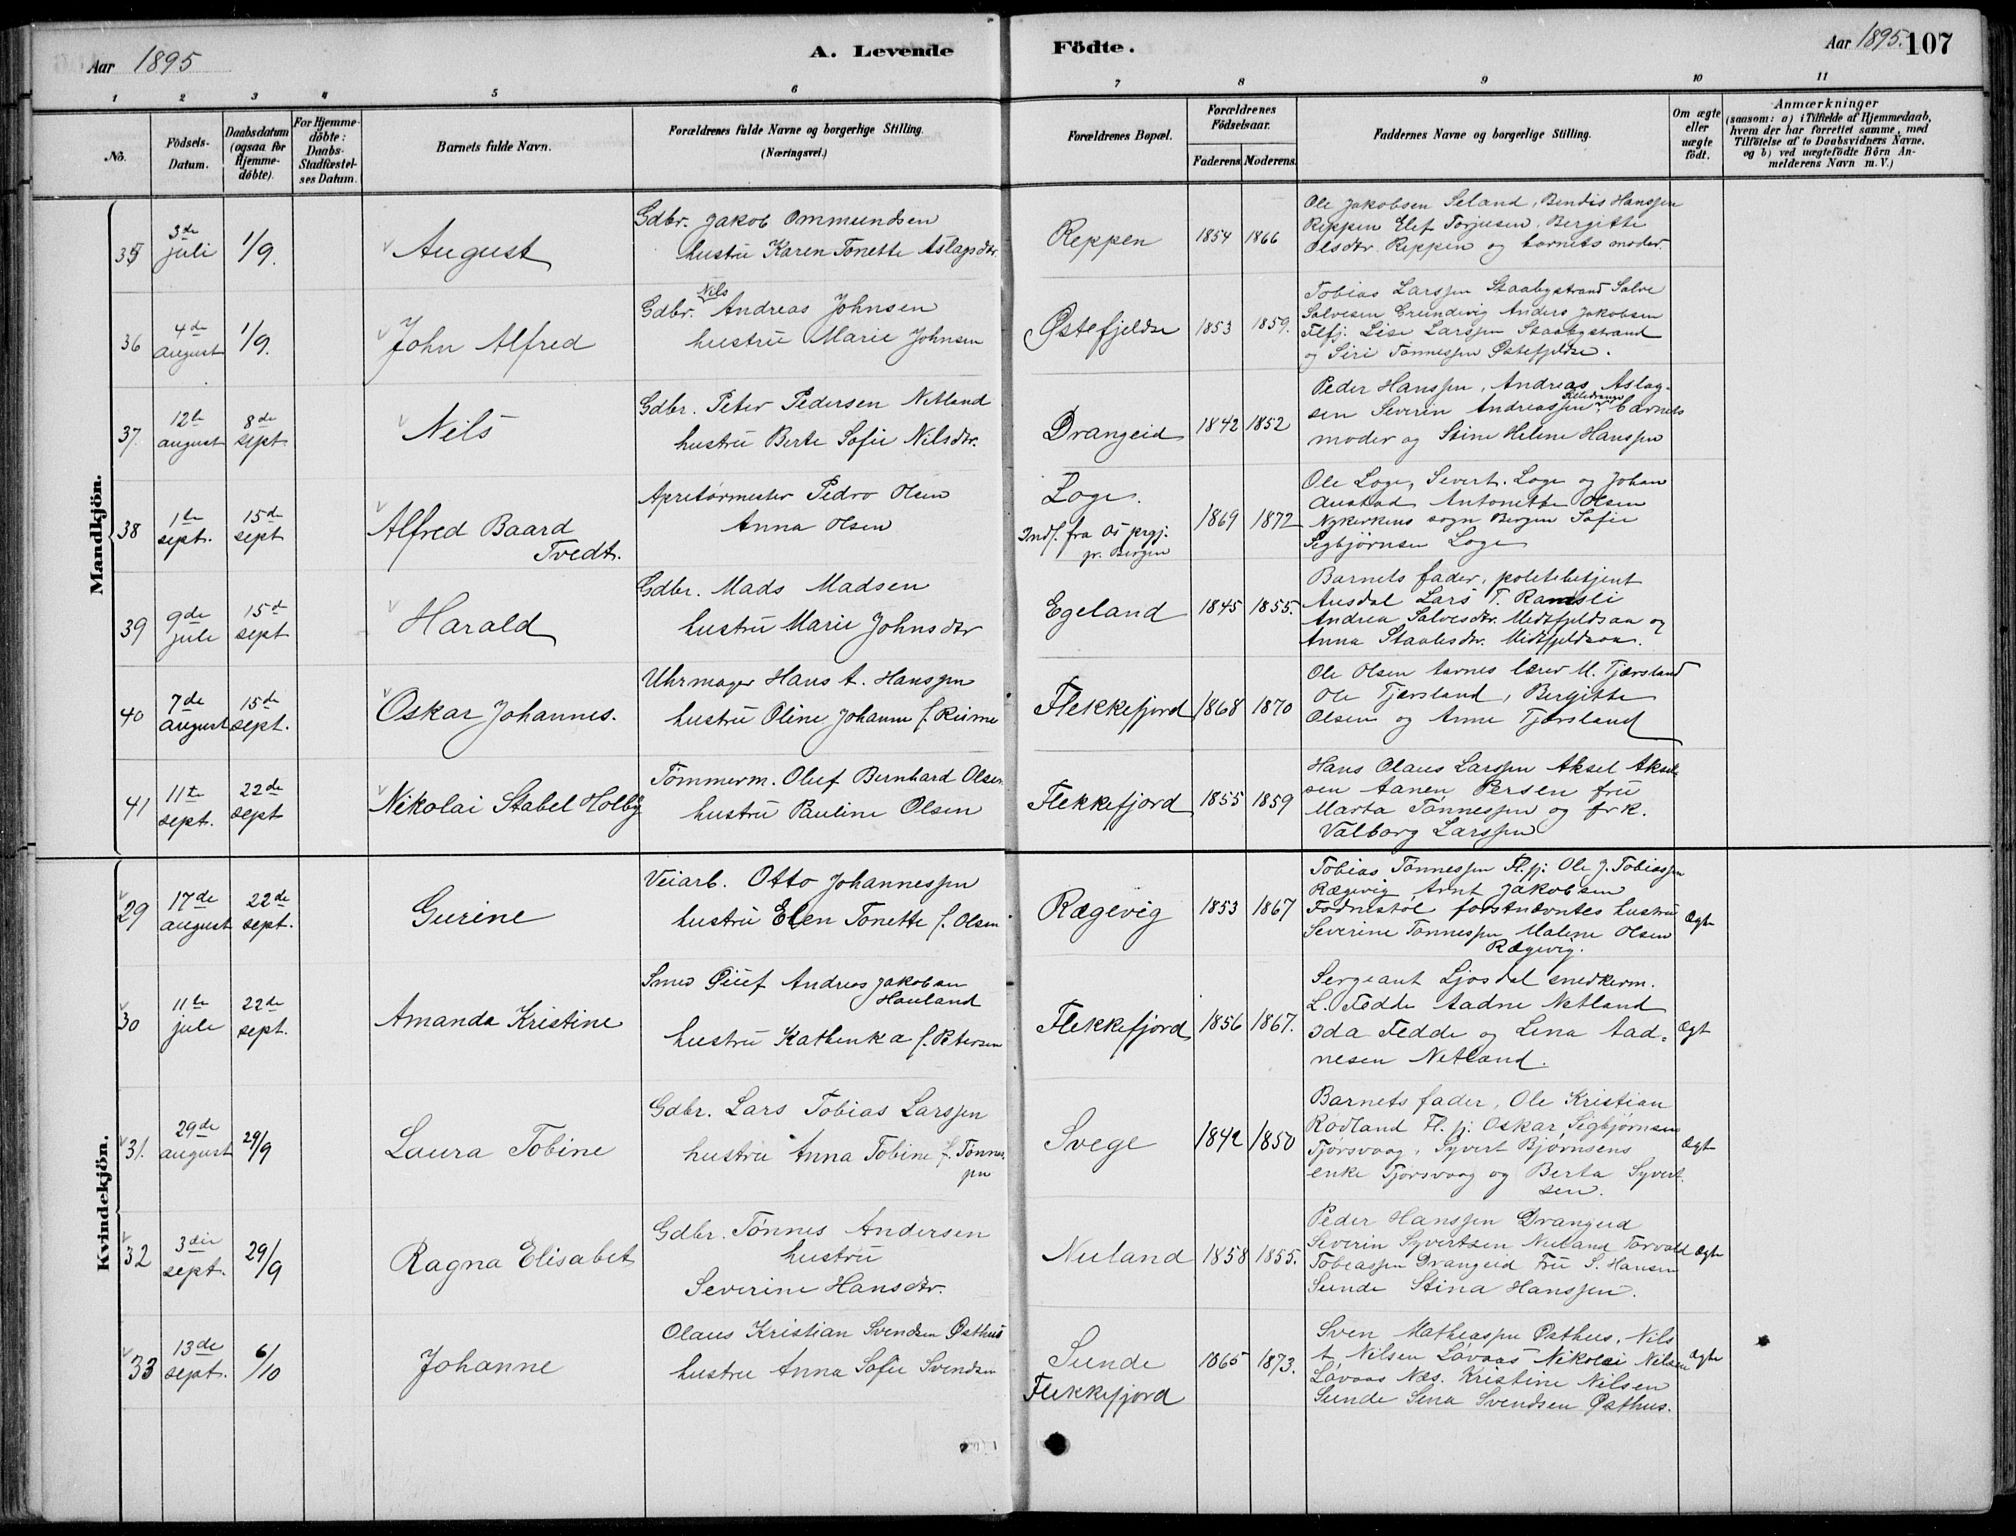 Aar 1895
A. Levende Födte.
Aar 1895. 107
1 2 3 4 5 6 7 8 9 10 11
No.
Födsels-Datum.
Daabsdatum (ogsaa for Hjemme-döbte).
For Hjemme-döbte: Daabs-Stadfæstel-ses Datum.
Barnets fulde Navn.
Forældrenes fulde Navne og borgerlige Stilling. (Næringsvei.)
Forældrenes Bopæl.
Forældrenes Födselsaar.
Faderens. Moderens.
Faddernes Navne og borgerlige Stilling.
Om ægte eller uægte födt.
Anmærkninger
(saasom: a) i Tilfælde af Hjemmedaab, hvem der har forrettet samme, med Tilföielse af to Daabsvidners Navne, og b) ved uægtefödte Börn Anmelderens Navn m. V.)
Mandkjön.
35 3de juli 1/9. August
Gdbr. Jakob Ommundsen
hustru Karen Tonette Aslagsdtr.
Reppen 1854 1866
Ole Jakobsen Seland, Bendis Hanssen
Reppen Elef Torjusen, Bergitte
Olsdtr. Reppen og barnets moder.
36 4de august 1/9. John Alfred
Gdbr. Nils Andreas Johnsen
hustru Marie Johnsen
Østefjeldse 1853 1859.
Tobias Larssen Staabystrand Salve
Salvesen Grundevig Anders Jakobsen
Flfj. Lise Larssen Staabystrand
og Siri Tønnessen Østefjeldse.
37. 12te august 8de sept. Nils
Gdbr. Peter Pedersen Netland
hustru Berte Sofie Nilsdtr.
Drangeid 1842 1852
Peder Hanssen, Andreas Aslag-
sen Severin Andreassen barnets
moder og Stine Helene Hanssen
38 1te sept. 15de sept Alfred Baard Tvedt.
Apretørmester Pedro Olsen
Anna Olsen
Loge.
Indf. fra Os prgj.
pr. Bergen
1869 1872
Ole Loge, Severt. Loge og Johan
Austad Antonette Olsen
Nykerkens sogn Bergen Sofie
Segbjørnsen Loge
39 9de jule 15de sept Harald
Gdbr. Mads Madsen
hustru Marie Johnsdtr
Egeland 1845 1855.
Barnets fader, politibetjent
Ausdal Lars T. Ramsli
Andrea Salvesdtr. Midtfjeldsaa og
Anna Staalesdtr. Midtfjeldsaa.
40 7de august 15de sept. Oskar Johannes.
Uhrmager Hans A. Hanssen
hustru Oline Johanne f. Risme
Flekkefjord 1868 1870
Ole Olsen Aavnes lærer M. Tjørsland
Ole Tjørsland, Bergitte
Olsen og Anne Tjørsland
41 11te sept. 22de sept Nikolai Stabel Holby
Tømmerm. Oluf Bernhard Olsen
hustru Pauline Olsen
Flekkefjord 1855 1859
Hans Olaus Larssen Aksel Aksel
sen Aanen Persen fru
Marta Tønnessen og frk.
Valborg Larssen
Kvindekjön.
29 17de august 22de sept. Gurine
Veiarb. Otto Johannessen
hustru Elen Tonette f. Olsen
Rægevig 1853 1867
Tobias Tønnessen Fl.fj. Ole J. Tobiassen
Rægevig Arnt Jakobsen
Fodnestøl førstnævntes hustru
Severine Tønnessen Malene Olsen
Rægevig.
Ægte
30 11te jule 22de sept. Amanda Kristine
Smed Øiuf Andreas Jakobsen
Hauland
hustru Kathenka f. Petersen
Flekkefjord 1856 1867.
Sergeant Ljosdal snedkerm.
L. Fedde Aadne Netland
Ida Fedde og Lena Aad-
nesen Netland.
Ægt
31. 29de august 29/9 Laura Tobine
Gdbr. Lars Tobias Larssen
hustru Anna Tobine f. Tønnes
sen
Svege 1842 1850
Barnets fader, Ole Kristian
Rødland Fl.fj. Oskar Sigbjørnsen
Tjørsvaag, Syvert Bjørnsens
enke Tjorsvaag og Berta Syvert
sen.
Ægt
32 3die sept. 29/9 Ragna Elisabet
Gdbr. Tønnes Andersen
hustru
Severine Hansdtr.
Nuland 1858 1855.
Peder Hanssen Drangeid
Severin Syvertsen Nuland Torvald
Tobiassen Drangeid Fru S. Hansen
Sunde Stina Hanssen.
Ægte
33 13de sept. 6/10 Johanne
Olaus Kristian Svendsen Østhus
hustru Anna Sofie Svendsen
Sunde
Flekkefjord
1865 1873.
Sven Mathiassen Østhus, Nils
A Nilsen Løvaas Nikolai Nilsen
Løvaas Næs. Kristine Nilsen
Sunde Sina Svendsen Østhus.
Ægte